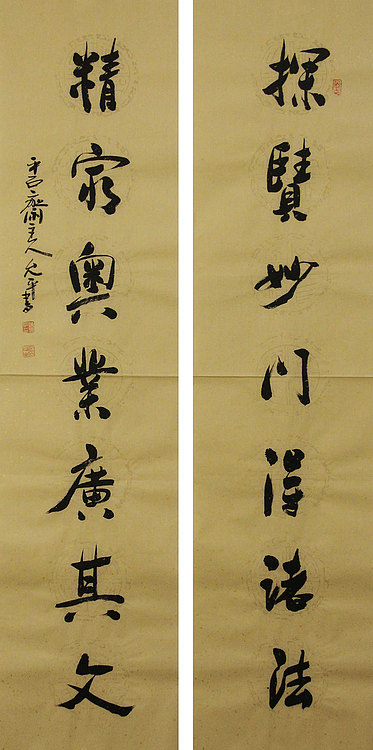 探賾妙門得諸法
精窮奧業廣其文
齋主人允平書